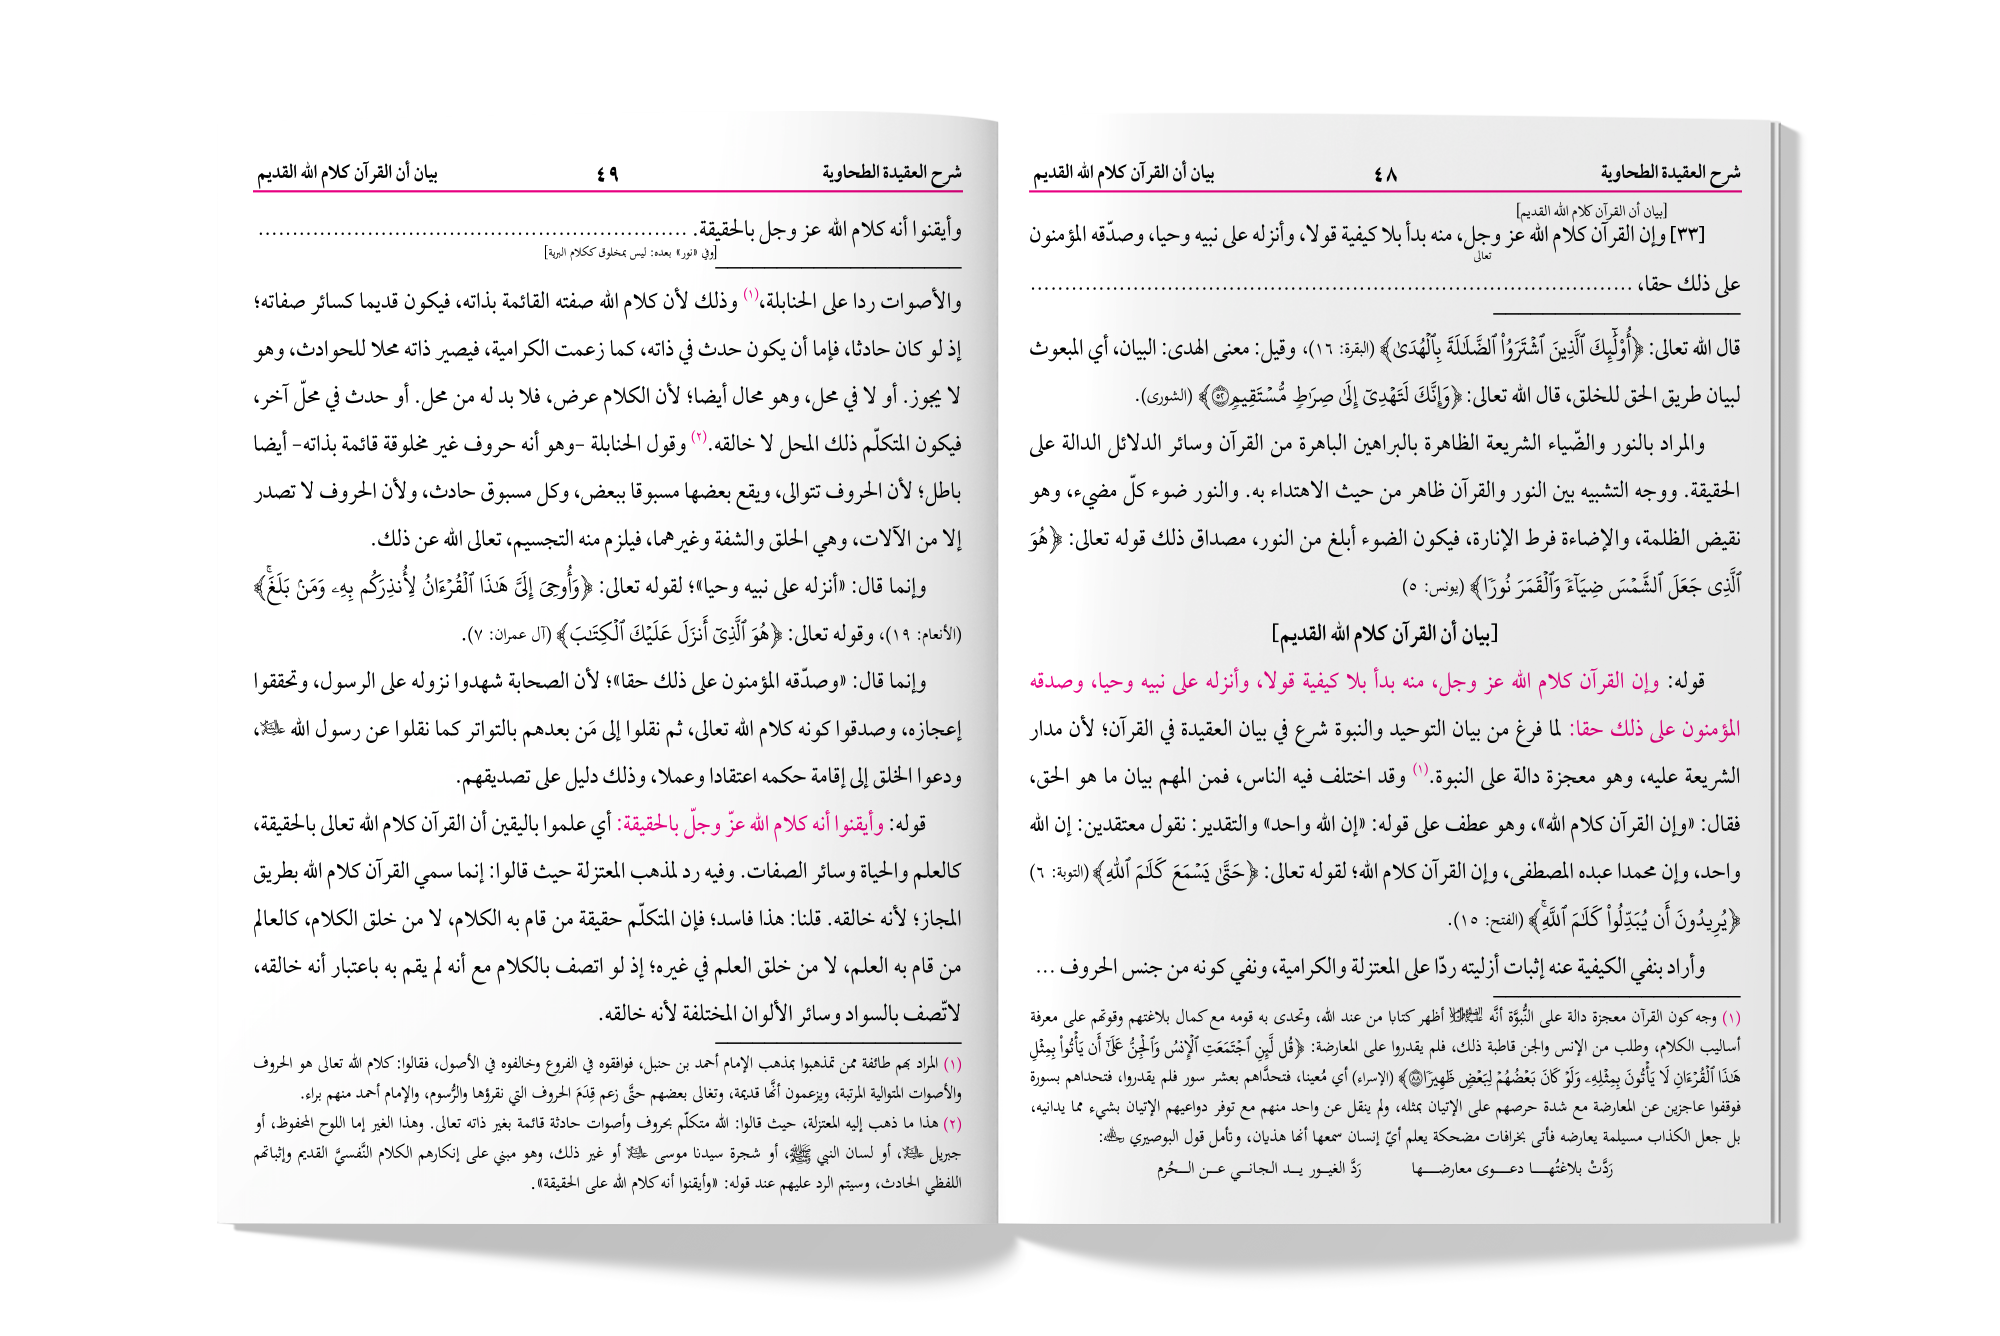 شرح العقيدة الطحاوية ٤٨ بيان أن القرآن كلام الله القديم
[بيان أن القرآن كلام الله القديم]
[٣٣] وإن القرآن كلام الله عز وجل، منه بدأ بلا كيفية قولا، وأنزله على نبيه وحيا، وصدّقه المؤمنون
تعالى
على ذلك حقا، ........................................................................................
قال الله تعالى: ﴿أُوْلَٰٓئِكَ ٱلَّذِينَ ٱشْتَرَوُاْ ٱلضَّلَٰلَةَ بِٱلْهُدَىٰ﴾ (البقرة: ١٦)، وقيل: معنى الهدى: البيان، أي المبعوث
لبيان طريق الحق للخلق، قال الله تعالى: ﴿وَإِنَّكَ لَتَهْدِىٓ إِلَىٰ صِرَٰطٍ مُّسْتَقِيمٍ ٥٢﴾ (الشورى).
والمراد بالنور والضّياء الشريعة الظاهرة بالبراهين الباهرة من القرآن وسائر الدلائل الدالة على
الحقيقة. ووجه التشبيه بين النور والقرآن ظاهر من حيث الاهتداء به. والنور ضوء كلّ مضيء، وهو
نقيض الظلمة، والإضاءة فرط الإنارة، فيكون الضوء أبلغ من النور، مصداق ذلك قوله تعالى: ﴿هُوَ
ٱلَّذِى جَعَلَ ٱلشَّمْسَ ضِيَآءً وَٱلْقَمَرَ نُورًا﴾ (يونس: ٥)
[بيان أن القرآن كلام الله القديم]
قوله: وإن القرآن كلام الله عز وجل، منه بدأ بلا كيفية قولا، وأنزله على نبيه وحيا، وصدقه
المؤمنون على ذلك حقا: لما فرغ من بيان التوحيد والنبوة شرع في بيان العقيدة في القرآن؛ لأن مدار
الشريعة عليه، وهو معجزة دالة على النبوة.(١) وقد اختلف فيه الناس، فمن المهم بيان ما هو الحق،
فقال: «وإن القرآن كلام الله»، وهو عطف على قوله: «إن الله واحد» والتقدير: نقول معتقدين: إن الله
واحد، وإن محمدا عبده المصطفى، وإن القرآن كلام الله؛ لقوله تعالى: ﴿حَتَّىٰ يَسْمَعَ كَلَٰمَ ٱللَّهِ﴾ (التوبة: ٦)
﴿يُرِيدُونَ أَن يُبَدِّلُواْ كَلَٰمَ ٱللَّهِۚ﴾ (الفتح: ١٥).
وأراد بنفي الكيفية عنه إثبات أزليته ردّا على المعتزلة والكرامية، ونفي كونه من جنس الحروف ...
(١) وجه كون القرآن معجزة دالة على النُّبوَّة أنَّه ﷺ أظهر كتابا من عند الله، وتحدى به قومه مع كمال بلاغتهم وقوتهم على معرفة
أساليب الكلام، وطلب من الإنس والجن قاطبة ذلك، فلم يقدروا على المعارضة: ﴿قُل لَّئِنِ ٱجْتَمَعَتِ ٱلْإِنسُ وَٱلْجِنُّ عَلَىٰٓ أَن يَأْتُواْ بِمِثْلِ
هَٰذَا ٱلْقُرْءَانِ لَا يَأْتُونَ بِمِثْلِهِۦ وَلَوْ كَانَ بَعْضُهُمْ لِبَعْضٍ ظَهِيرًا ٨٨﴾ (الإسراء) أي مُعينا، فتحدَّاهم بعشر سور فلم يقدروا، فتحداهم بسورة
فوقفوا عاجزين عن المعارضة مع شدة حرصهم على الإتيان بمثله، ولم ينقل عن واحد منهم مع توفر دواعيهم الإتيان بشيء مما يدانيه،
بل جعل الكذاب مسيلمة يعارضه فأتى بخرافات مضحكة يعلم أيّ إنسان سمعها أنها هذيان، وتأمل قول البوصيري رحمه الله:
رَدَّتْ بلاغتُهـا دعـوى معارضـها رَدَّ الغيـور يـد الجانـي عـن الـحُرم
شرح العقيدة الطحاوية ٤٩ بيان أن القرآن كلام الله القديم
وأيقنوا أنه كلام الله عز وجل بالحقيقة. ...............................................................
[وفي «نور» بعده: ليس بمخلوق ككلام البرية]
والأصوات ردا على الحنابلة،(١) وذلك لأن كلام الله صفته القائمة بذاته، فيكون قديما كسائر صفاته؛
إذ لو كان حادثا، فإما أن يكون حدث في ذاته، كما زعمت الكرامية، فيصير ذاته محلا للحوادث، وهو
لا يجوز. أو لا في محل، وهو محال أيضا؛ لأن الكلام عرض، فلا بد له من محل. أو حدث في محلّ آخر،
فيكون المتكلّم ذلك المحل لا خالقه.(٢) وقول الحنابلة -وهو أنه حروف غير مخلوقة قائمة بذاته- أيضا
باطل؛ لأن الحروف تتوالى، ويقع بعضها مسبوقا ببعض، وكل مسبوق حادث، ولأن الحروف لا تصدر
إلا من الآلات، وهي الحلق والشفة وغيرهما، فيلزم منه التجسيم، تعالى الله عن ذلك.
وإنما قال: «أنزله على نبيه وحيا»؛ لقوله تعالى: ﴿وَأُوحِىَ إِلَىَّ هَٰذَا ٱلْقُرْءَانُ لِأُنذِرَكُم بِهِۦ وَمَنۢ بَلَغَۚ﴾
(الأنعام: ١٩)، وقوله تعالى: ﴿هُوَ ٱلَّذِىٓ أَنزَلَ عَلَيْكَ ٱلْكِتَٰبَ﴾ (آل عمران: ٧).
وإنما قال: «وصدّقه المؤمنون على ذلك حقا»؛ لأن الصحابة شهدوا نزوله على الرسول، وتحققوا
إعجازه، وصدقوا كونه كلام الله تعالى، ثم نقلوا إلى مَن بعدهم بالتواتر كما نقلوا عن رسول الله عليه السلام،
ودعوا الخلق إلى إقامة حكمه اعتقادا وعملا، وذلك دليل على تصديقهم.
قوله: وأيقنوا أنه كلام الله عزّ وجلّ بالحقيقة: أي علموا باليقين أن القرآن كلام الله تعالى بالحقيقة،
كالعلم والحياة وسائر الصفات. وفيه رد لمذهب المعتزلة حيث قالوا: إنما سمي القرآن كلام الله بطريق
المجاز؛ لأنه خالقه. قلنا: هذا فاسد؛ فإن المتكلّم حقيقة من قام به الكلام، لا من خلق الكلام، كالعالم
من قام به العلم، لا من خلق العلم في غيره؛ إذ لو اتصف بالكلام مع أنه لم يقم به باعتبار أنه خالقه،
لاتّصف بالسواد وسائر الألوان المختلفة لأنه خالقه.
(١) المراد بهم طائفة ممن تمذهبوا بمذهب الإمام أحمد بن حنبل، فوافقوه في الفروع وخالفوه في الأصول، فقالوا: كلام الله تعالى هو الحروف
والأصوات المتوالية المرتبة، ويزعمون أنَّها قديمة، وتغالى بعضهم حتَّى زعم قِدَمَ الحروف التي نقرؤها والرُّسوم، والإمام أحمد منهم براء.
(٢) هذا ما ذهب إليه المعتزلة، حيث قالوا: الله متكلّم بحروف وأصوات حادثة قائمة بغير ذاته تعالى. وهذا الغير إما اللوح المحفوظ، أو
جبريل عليه السلام، أو لسان النبي ﷺ، أو شجرة سيدنا موسى عليه السلام أو غير ذلك، وهو مبني على إنكارهم الكلام النَّفسيَّ القديم وإثباتهم
اللفظي الحادث، وسيتم الرد عليهم عند قوله: «وأيقنوا أنه كلام الله على الحقيقة».